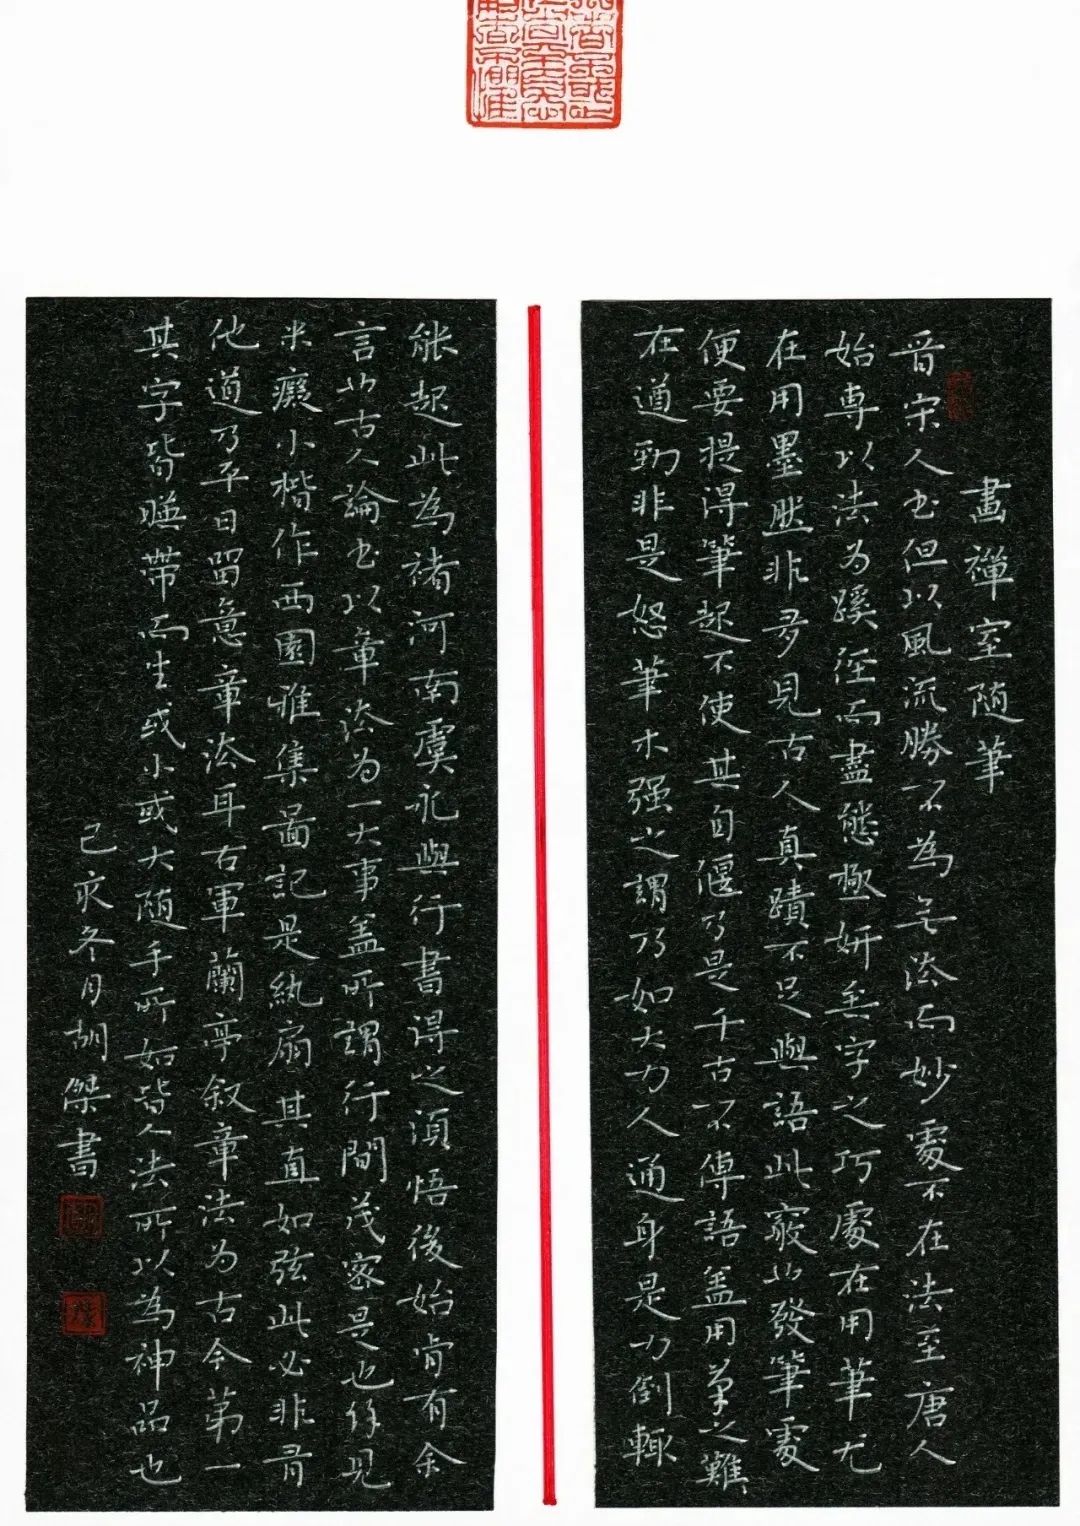 畫禪室随筆
晉宋人书但以風流勝不為无法而妙處不在法至唐人
始専以法为蹊徑而盡態極妍矣字之巧處在用筆尤
在用墨然非多見古人真蹟不足與語此竅也發筆處
便要提得筆起不使其自偃乃是千古不傳語盖用筆之難
在遒勁非是怒筆木强之謂乃如大力人通身是力倒輙
能起此為褚河南虞永興行書得之須悟後始肯有余
言也古人論书以章法为一大事盖所謂行間茂密是也余見
米癡小楷作西園雅集圖記是紈扇其直如弦此必非有
他道乃平日留意章法耳右軍蘭亭叙章法为古今第一
其字皆暎帶而生或小或大随手所如皆入法所以為神品也
己亥冬月胡傑書